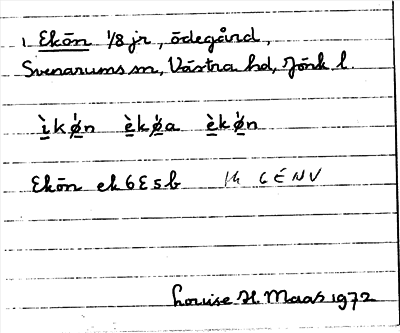 1. Ekön 1/8 jr, ödegård,
Svenarums sn, Västra hd, Jönk l.
ìkø̀n èkø̀a èkø̀n
Ekön ek6E5b
Louise H. Maas 1972